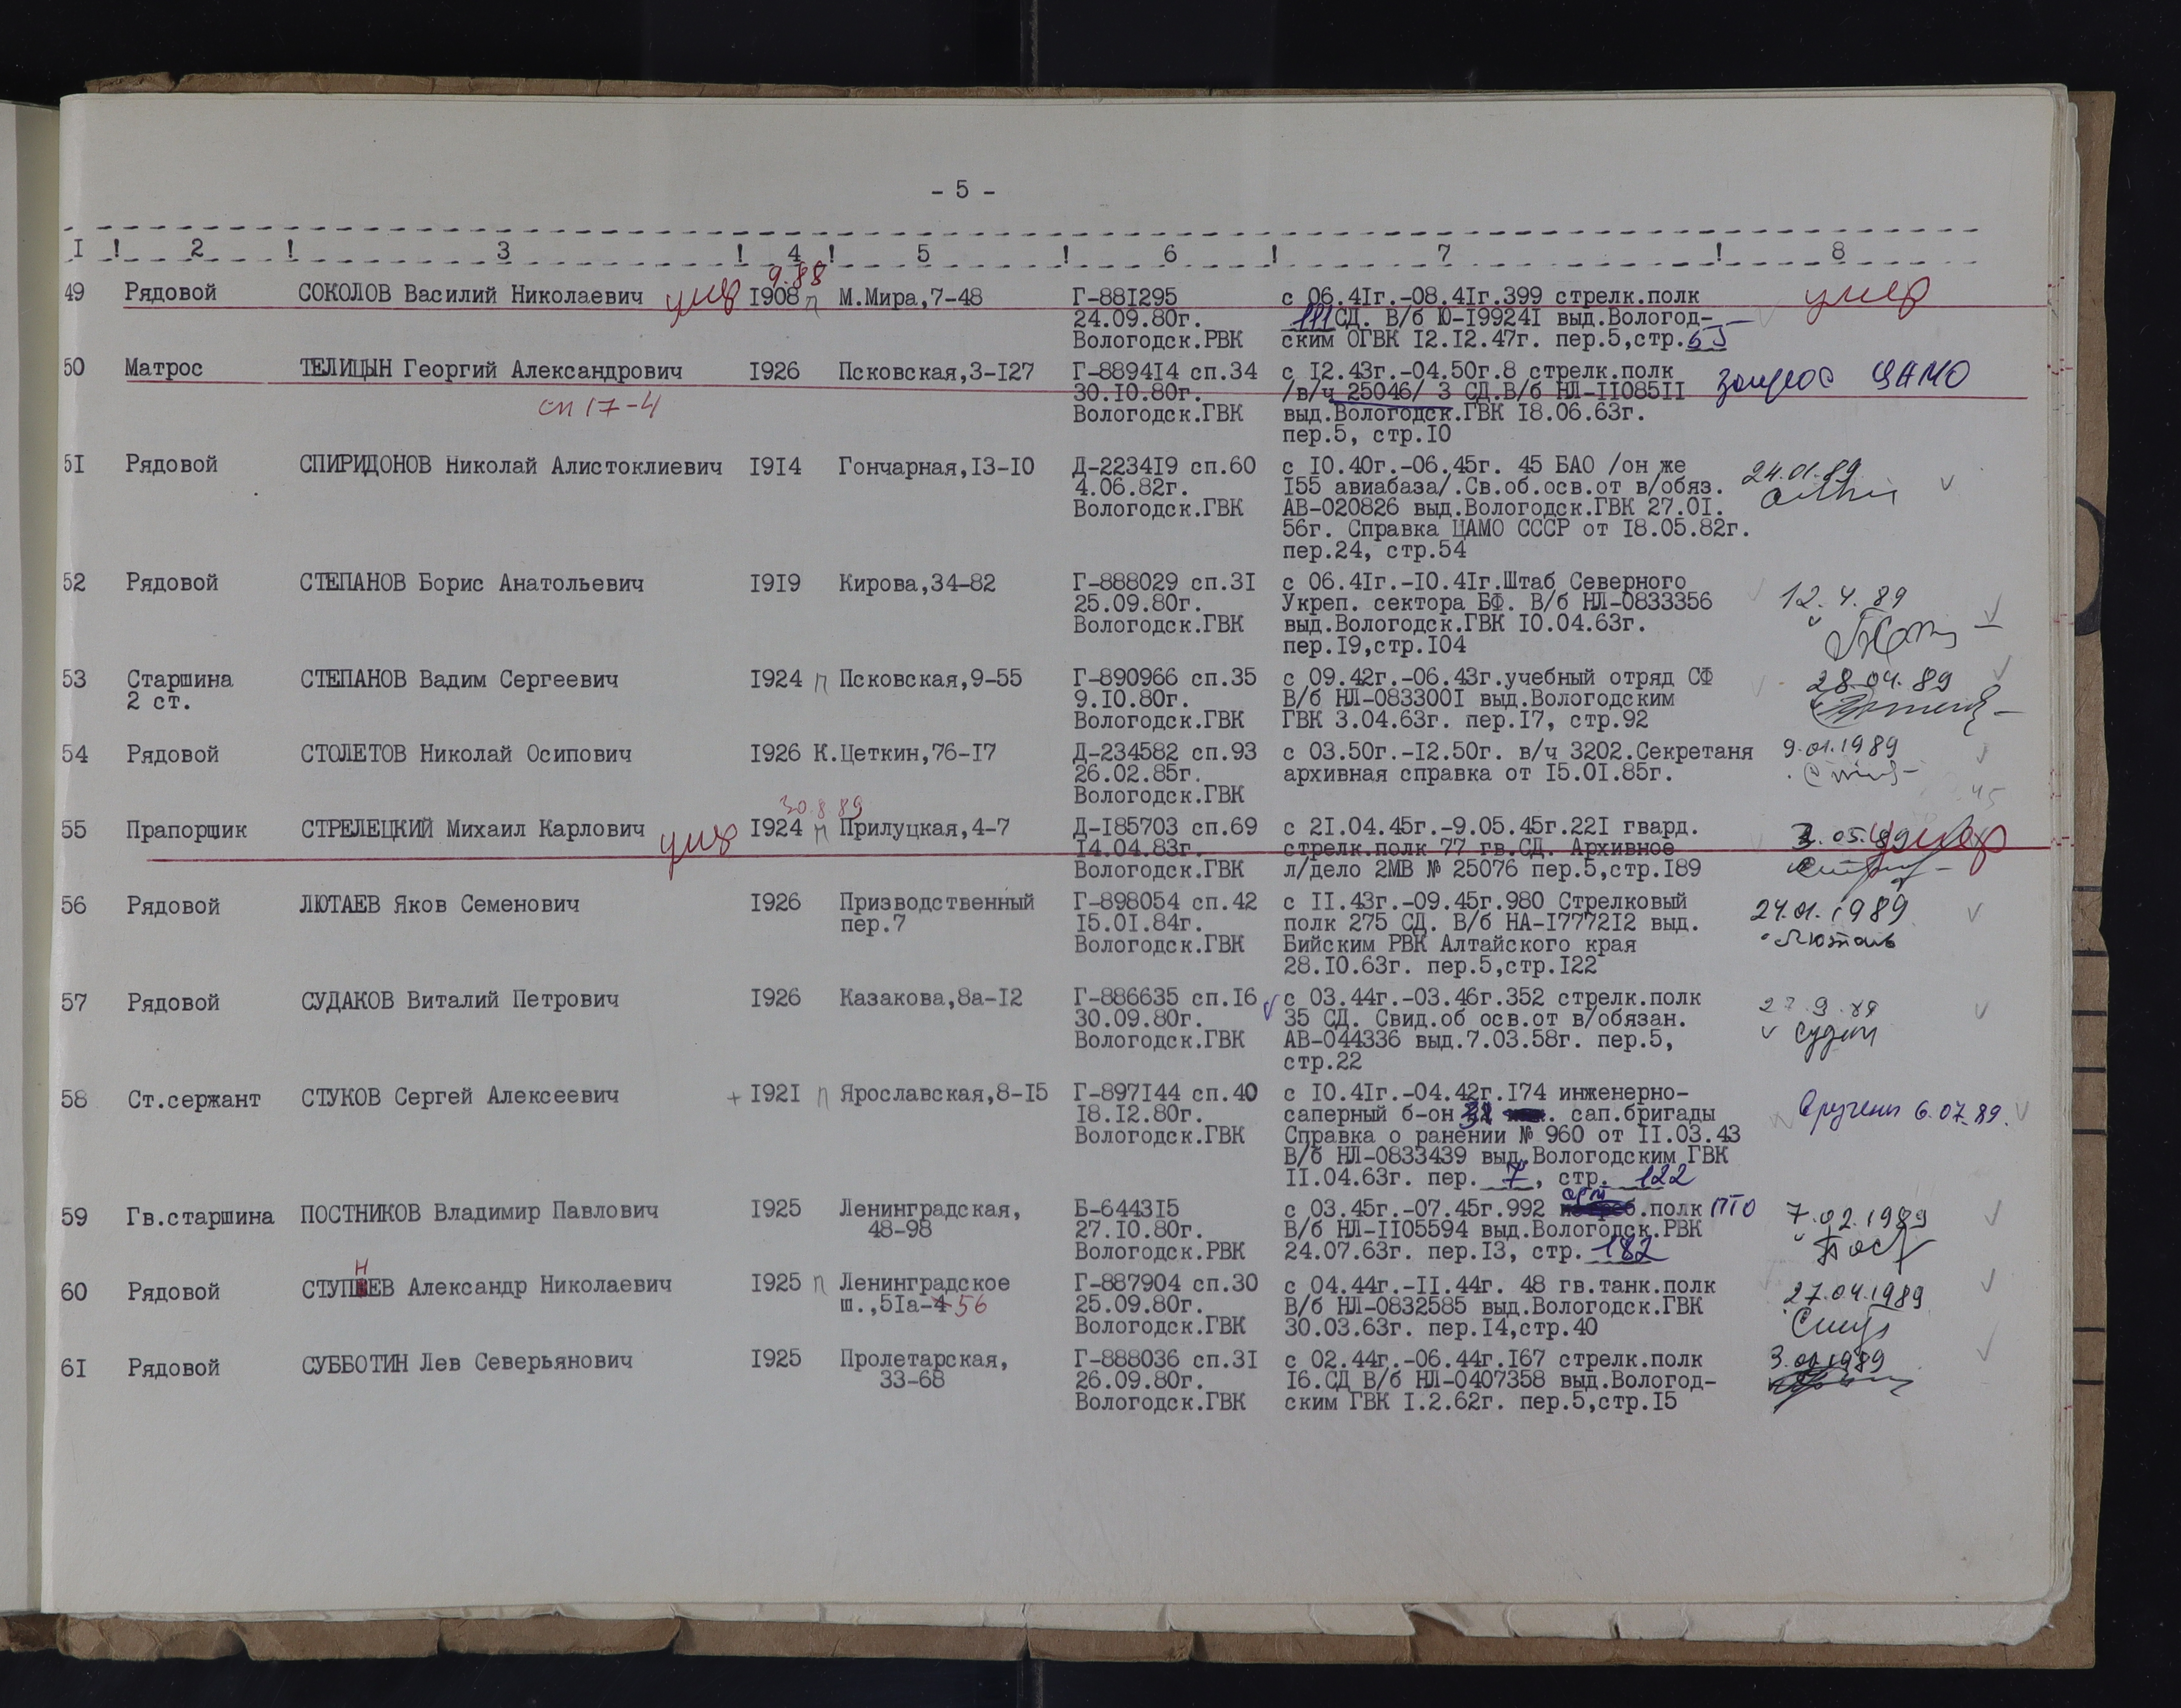 - 5 -
I ! 2 ! 3 ! 4 ! 5 ! 6 ! 7 ! 8
9.88
49 Рядовой СОКОЛОВ Василий Николаевич умер I908 п М.Мира,7-48 Г-88I295 с 06.4Iг.-08.4Iг.399 стрелк.полк умер
24.09.80г. 111СД. В/б Ю-I9924I выд.Вологод-
Вологодск.РВК ским ОГВК I2.I2.47г. пер.5,стр.
50 Матрос ТЕЛИЦЫН Георгий Александрович I926 Псковская,3-I27 Г-8894I4 сп.34 с I2.43г.-04.50г.8 стрелк.полк запрос ЦАМО
30.I0.80г. /в/ч 25046/ 3 СД.В/б НЛ-II085II
сп 17-4 Вологодск.ГВК выд.Вологодск.ГВК I8.06.63г.
пер.5, стр.I0
5I Рядовой СПИРИДОНОВ Николай Алистоклиевич I9I4 Гончарная,I3-I0 Д-2234I9 сп.60 с I0.40г.-06.45г. 45 БАО /он же 24.01.89
4.06.82г. I55 авиабаза/.Св.об.осв.от в/обяз.
Вологодск.ГВК АВ-020826 выд.Вологодск.ГВК 27.0I.
56г. Справка ЦАМО СССР от I8.05.82г.
пер.24, стр.54
52 Рядовой СТЕПАНОВ Борис Анатольевич I9I9 Кирова,34-82 Г-888029 сп.3I с 06.4Iг.-I0.4Iг.Штаб Северного 12.4.89
25.09.80г. Укреп. сектора БФ. В/б НЛ-0833356
Вологодск.ГВК выд.Вологодск.ГВК I0.04.63г.
пер.I9,стр.I04
53 Старшина СТЕПАНОВ Вадим Сергеевич I924 п Псковская,9-55 Г-890966 сп.35 с 09.42г.-06.43г.учебный отряд СФ 28.04.89
2 ст. 9.I0.80г. В/б НЛ-083300I выд.Вологодским
Вологодск.ГВК ГВК 3.04.63г. пер.I7, стр.92
54 Рядовой СТОЛЕТОВ Николай Осипович I926 К.Цеткин,76-I7 Д-234582 сп.93 с 03.50г.-I2.50г. в/ч 3202.Секретаня 9.01.1989
26.02.85г. архивная справка от I5.0I.85г.
Вологодск.ГВК
30.8.89 45
55 Прапорщик СТРЕЛЕЦКИЙ Михаил Карлович умер I924 п Прилуцкая,4-7 Д-I85703 сп.69 с 2I.04.45г.-9.05.45г.22I гвард. 3.05.89 умер
I4.04.83г. стрелк.полк 77 гв.СД. Архивное
Вологодск.ГВК л/дело 2МВ № 25076 пер.5,стр.I89
56 Рядовой ЛЮТАЕВ Яков Семенович I926 Призводственный Г-898054 сп.42 с II.43г.-09.45г.980 Стрелковый 24.01.1989
пер.7 I5.0I.84г. полк 275 СД. В/б НА-I7772I2 выд.
Вологодск.ГВК Бийским РВК Алтайского края Лютаев
28.I0.63г. пер.5,стр.I22
57 Рядовой СУДАКОВ Виталий Петрович I926 Казакова,8а-I2 Г-886635 сп.I6 с 03.44г.-03.46г.352 стрелк.полк 27.9.89
30.09.80г. 35 СД. Свид.об осв.от в/обязан.
Вологодск.ГВК АВ-044336 выд.7.03.58г. пер.5,
стр.22
58 Ст.сержант СТУКОВ Сергей Алексеевич + I92I п Ярославская,8-I5 Г-897I44 сп.40 с I0.4Iг.-04.42г.I74 инженерно-
I8.I2.80г. саперный б-он . сап.бригады Вручены 6.07.89.
Вологодск.ГВК Справка о ранении № 960 от II.03.43
В/б НЛ-0833439 выд.Вологодским ГВК
II.04.63г. пер. 7, стр. 122
59 Гв.старшина ПОСТНИКОВ Владимир Павлович I925 Ленинградская, Б-6443I5 с 03.45г.-07.45г.992 арт .полк ПТО 7.02.1989
48-98 27.I0.80г. В/б НЛ-II05594 выд.Вологодск.РВК
Вологодск.РВК 24.07.63г. пер.I3, стр. 182
60 Рядовой СТУПНЕВ Александр Николаевич I925 п Ленинградское Г-887904 сп.30 с 04.44г.-II.44г. 48 гв.танк.полк 27.04.1989
ш.,5Iа-4 56 25.09.80г. В/б НЛ-0832585 выд.Вологодск.ГВК
Вологодск.ГВК 30.03.63г. пер.I4,стр.40
6I Рядовой СУББОТИН Лев Северьянович I925 Пролетарская, Г-888036 сп.3I с 02.44г.-06.44г.I67 стрелк.полк 3.01.1989
33-68 26.09.80г. I6.СД В/б НЛ-0407358 выд.Вологод-
Вологодск.ГВК ским ГВК I.2.62г. пер.5,стр.I5